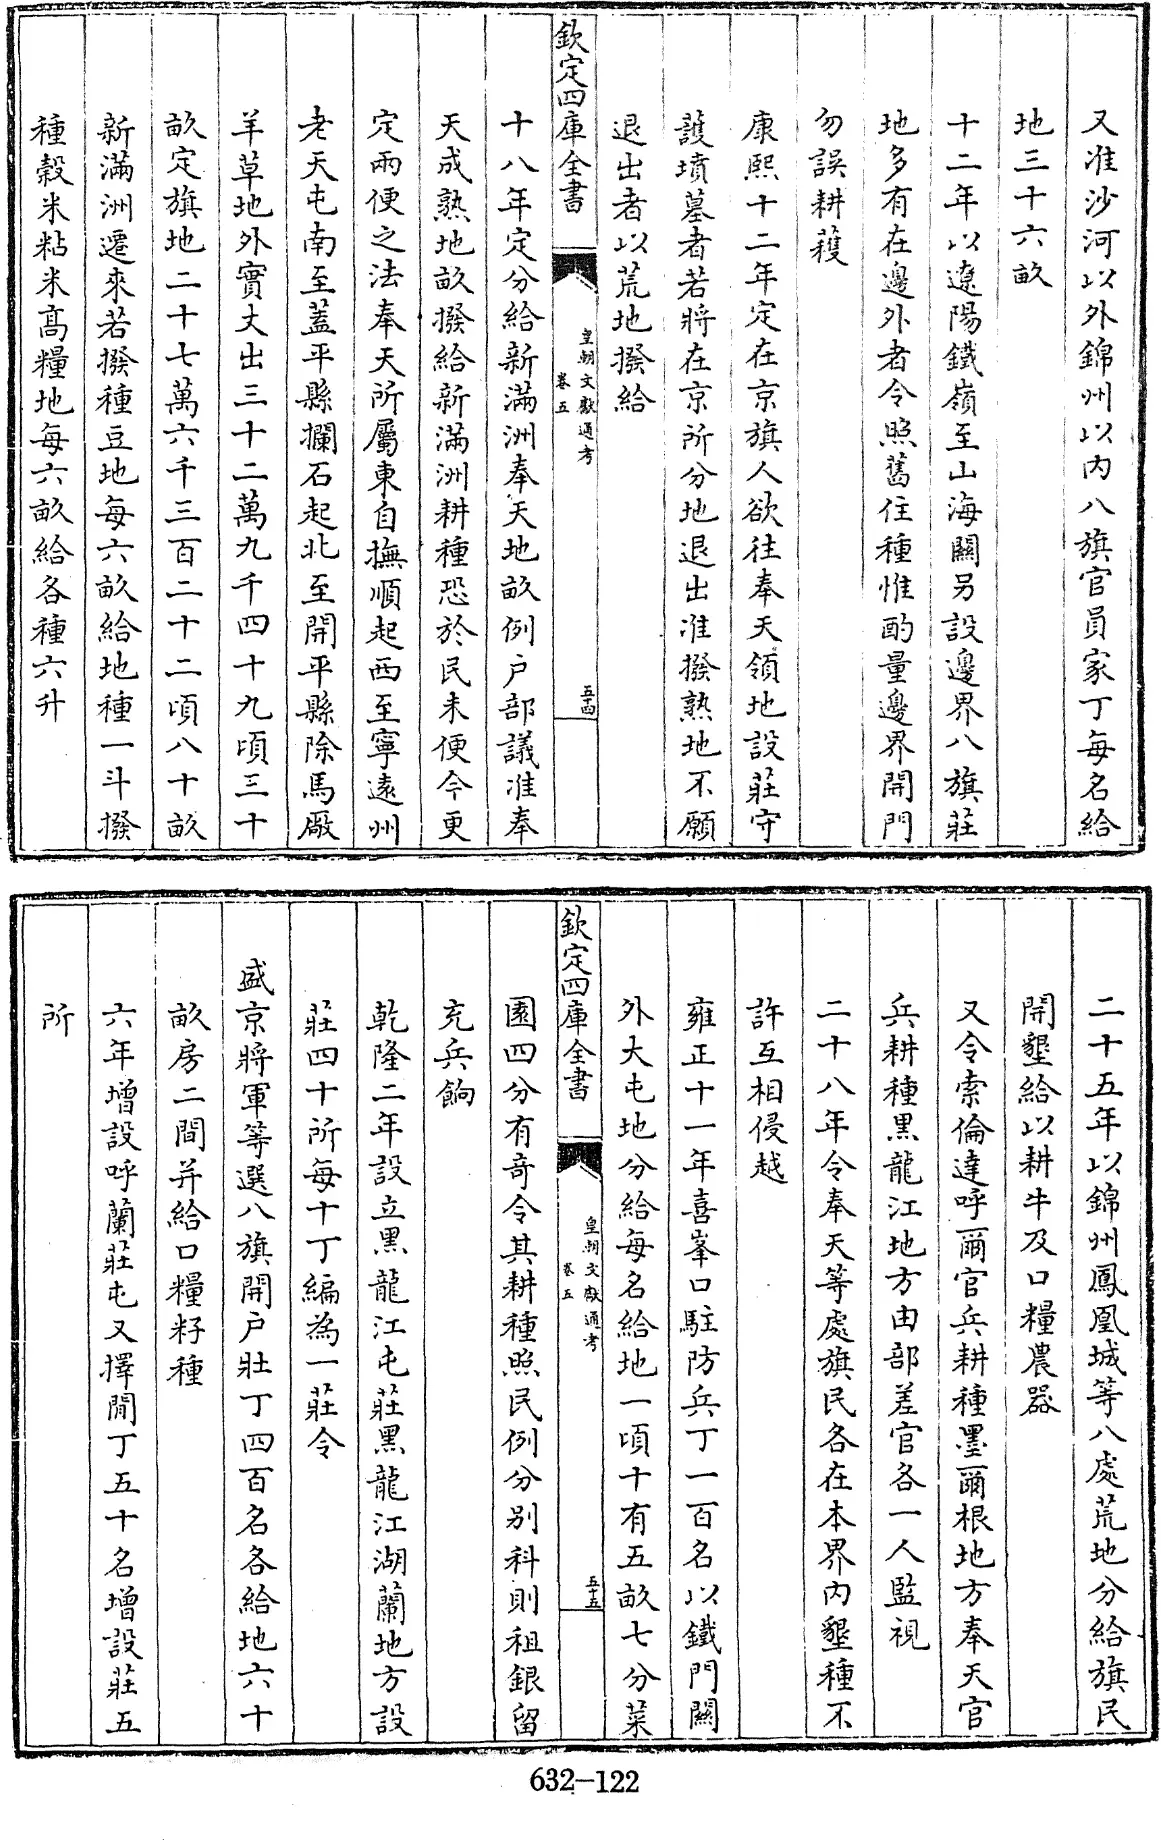 又准沙河以外錦州以内八旗官員家丁每名給
地三十六畝
十二年以遼陽鐵嶺至山海關另設邊界八旗莊
地多有在邊外者令照舊住種惟酌量邊界開門
勿誤耕穫
康熙十二年定在京旗人欲往奉天領地設莊守
護墳墓者若將在京所分地退出准撥熟地不願
退出者以荒地撥給
欽定四庫全書
皇朝文獻通考
卷五
五十四
十八年定分給新滿洲奉天地畝例户部議准奉
天成熟地畝撥給新滿洲耕種恐於民未便今更
定兩便之法奉天所屬東自撫順起西至寧遠州
老天屯南至蓋平縣攔石起北至開平縣除馬厰
羊草地外實丈出三十二萬九千四十九頃三十
畝定旗地二十七萬六千三百二十二頃八十畝
新滿洲遷來若撥種豆地每六畝給地種一斗撥
種穀米粘米高糧地每六畝給各種六升
二十五年以錦州鳳凰城等八處荒地分給旗民
開墾給以耕牛及口糧農器
又令索倫達呼爾官兵耕種墨爾根地方奉天官
兵耕種黑龍江地方由部差官各一人監視
二十八年令奉天等處旗民各在本界内墾種不
許互相侵越
雍正十一年喜峯口駐防兵丁一百名以鐵門關
外大屯地分給每名給地一頃十有五畝七分菜
園四分有奇令其耕種照民例分别科則租銀留
充兵餉
欽定四庫全書
皇朝文獻通考
卷五
五十五
乾隆二年設立黑龍江屯莊黑龍江湖蘭地方設
莊四十所每十丁編為一莊令
盛京將軍等選八旗開户壯丁四百名各給地六十
畝房二間并給口糧籽種
六年增設呼蘭莊屯又擇閒丁五十名增設莊五
所
632-122